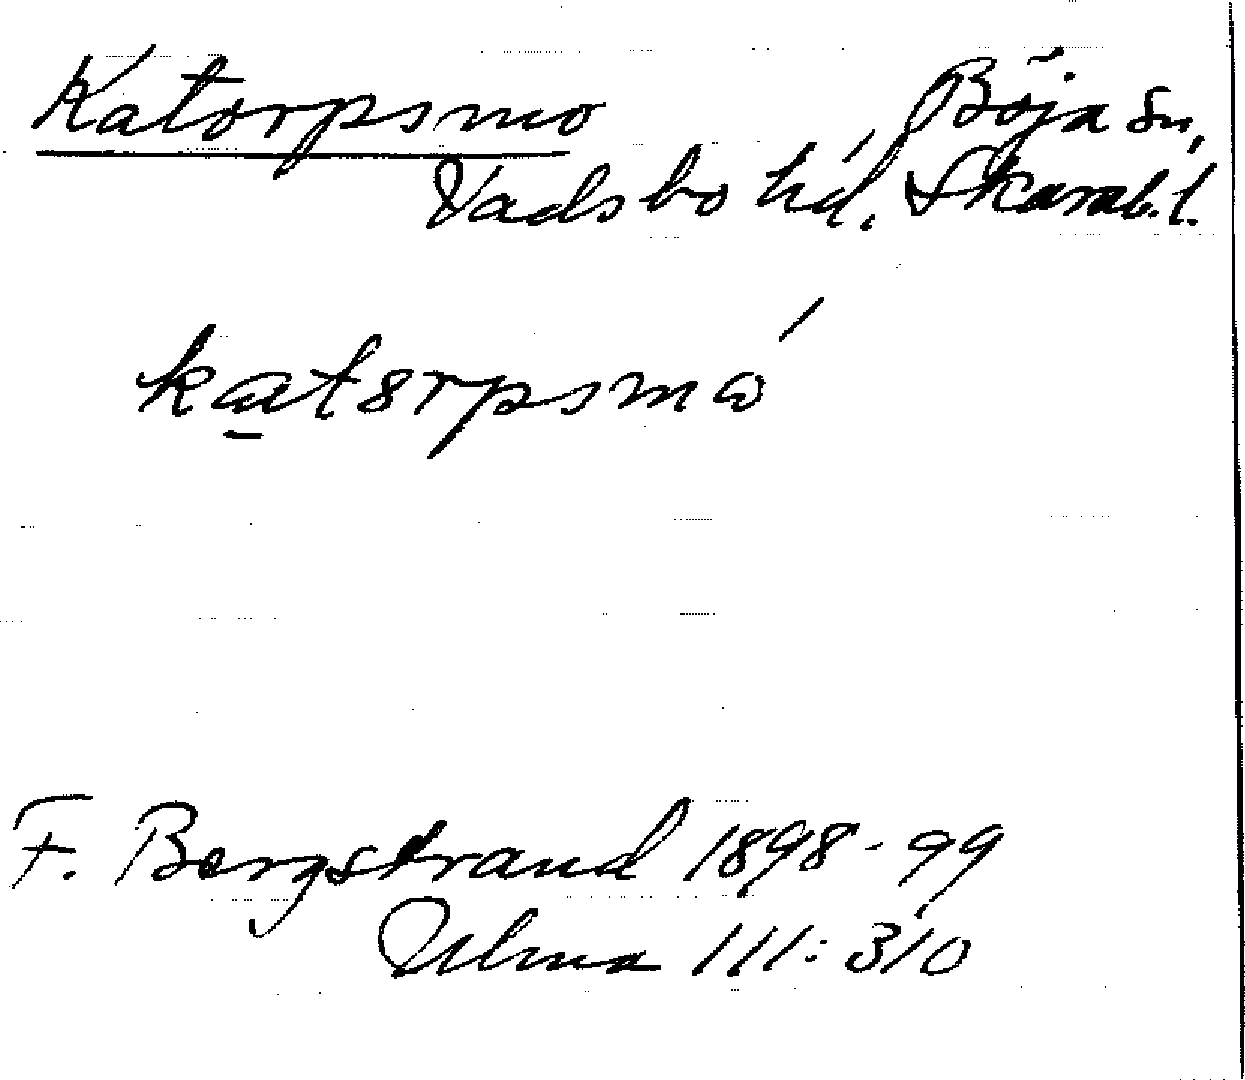 Katorpsmo Böja sn,
Vadsbo hd, Skarab.l.
katorpsmo
F. Bergstrand 1898-99
Ulma 111:310